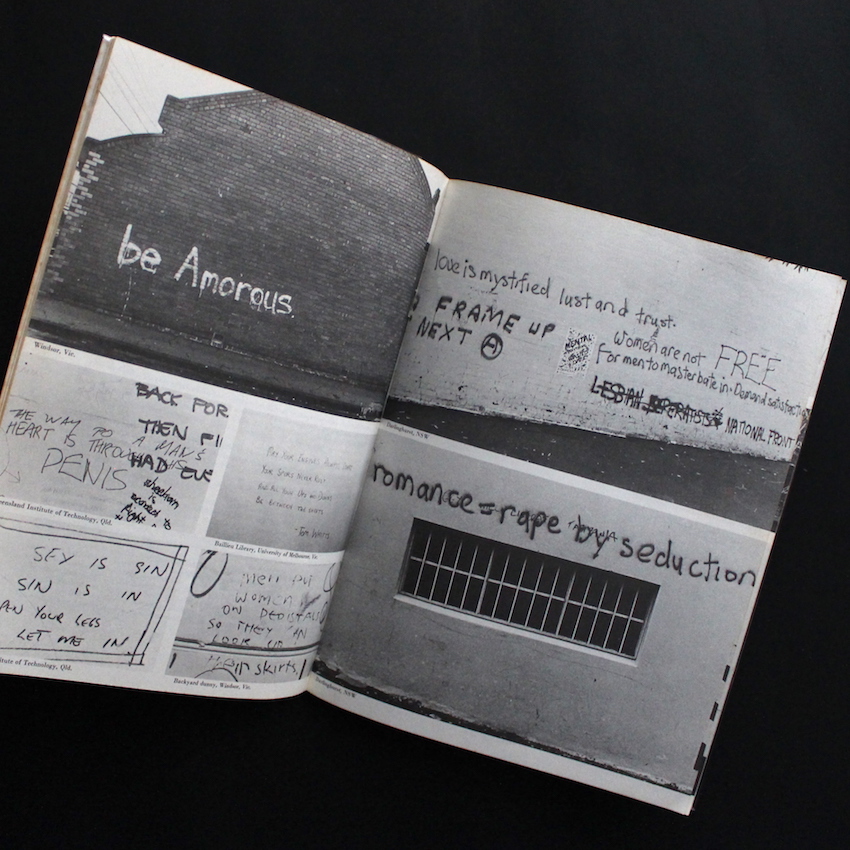 be Amorous.
Windsor, Vic.
BACK FOR
THEN
HAD
THE WAY TO A MAN'S
HEART IS THROUGH HIS
PENIS
Queensland Institute of Technology, Qld.
MAY YOUR
YOUR SPURS NEVER RUST
BE
- Tom Waits
Baillieu Library, University of Melbourne, Vic
SEX IS SIN
SIN IS IN
YOUR LEGS
LET ME IN
Institute of Technology, Qld.
Men put
WOMEN
ON PEDESTALS
SO THEY CAN
LOOK UP
their skirts,
Backyard dunny, Windsor, Vic.
love is mystified lust and trust.
FRAME UP
NEXT
MENTAL
Women are not FREE
For men to masterbate in. Demand satisfaction
LESBIAN SEPERATISTS NATIONAL FRONT
Darlinghurst, NSW
romance = rape by seduction
Darlinghurst, NSW